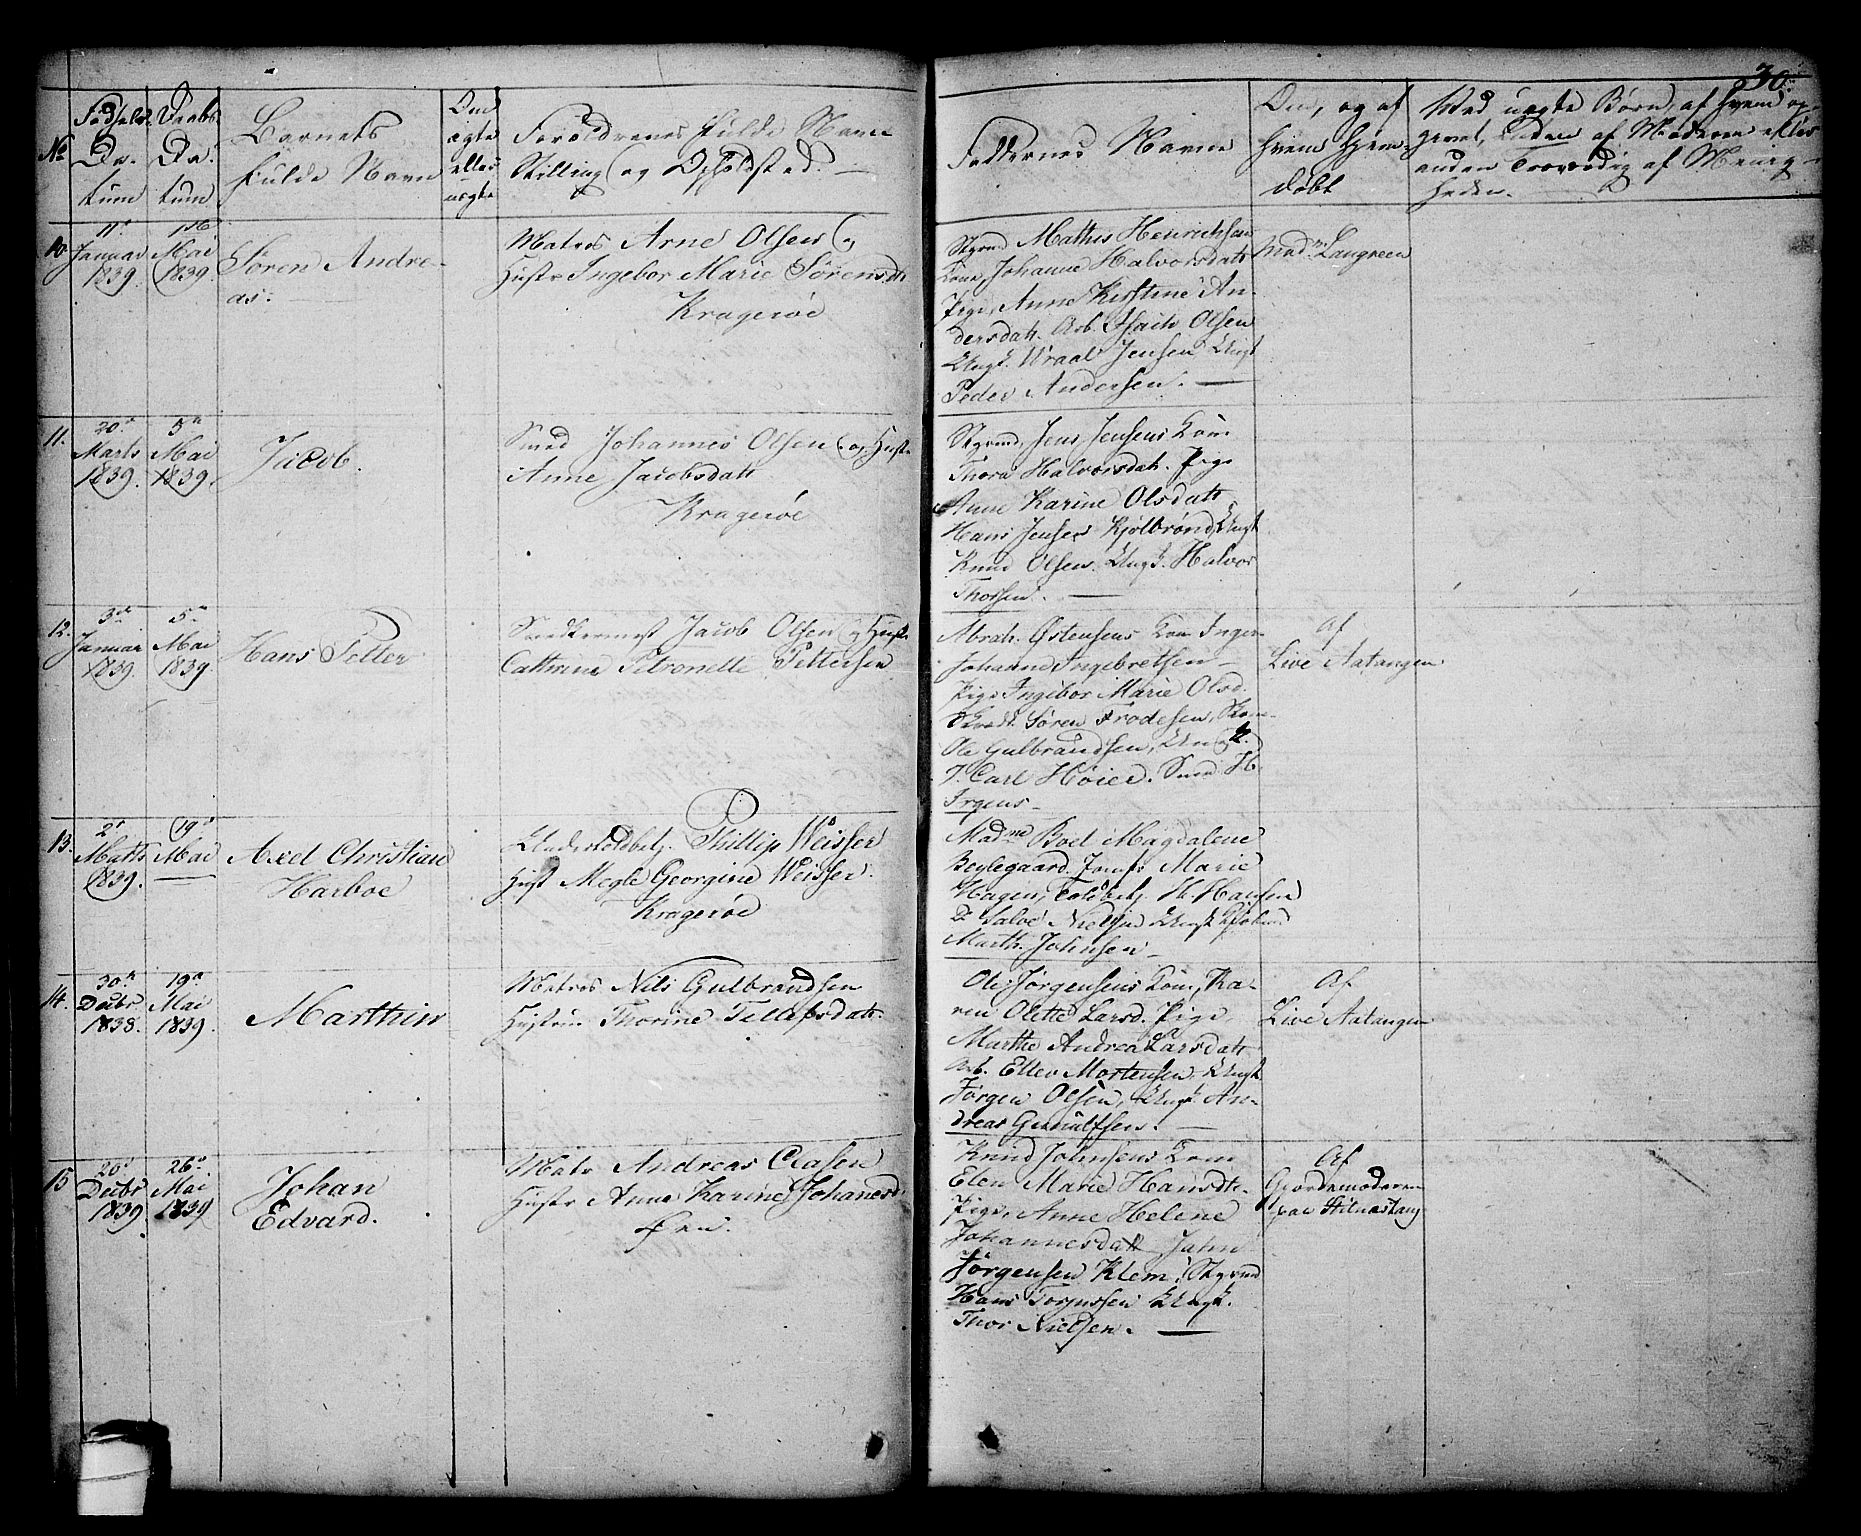 30.
No
Fødsels-
Da-
tum
Daabs-
Da-
tum
Barnets
fulde Navn
Om
ægte
eller
uægte
Forældrenes fulde Navn
Stilling og Opholdsted.
Faddernes Navne
Om, og af
hvem hjem-
døbt
Ved uægte Børn, af hvem op-
givet, Uden af Moderen eller
anden Troværdig af Menig-
heden.
10.
11te
Januar
1839.
Mai
1839.
Søren Andre-
as.
Matros Arne Olsen og
Hustr Ingebor Marie Sørensdt
Kragerøe
Styrmd Mathis Henrichsen
Kone, Johanne Halvorsdatt
Pige, Anne Kirstine An-
dersdatt. Arb. Isach Olsen
Ungk. Wraal Jensen Ungk
Peder Andersen.
Mad. Langreen
11.
20de
Marts
1839.
5te
Mai
1839.
Jacob.
Smed Johannes Olsen og Hustr
Anne Jacobsdatt
Kragerøe
Styrmd. Jens Jensens Kone
Thora Halvorsdatt. Pige
Anne Karine Olsdatt
Hans Jensen Kjølbrønd, Ungk
Knud Olsen. Ungk. Halvor
Thorsen.
12.
3die
Januar
1839.
5te
Mai
1839.
Hans Petter
Snedkermest Jacob Olsen og Hustr
Cathrine Petronelle Pettersen
Abrah. Østensens Kone Inger
Johanne Ingebretsen
Pige Ingebor Marie Olsd.
Søren Frodesen,
Ole Gulbrandsen,
Carl Høier. Smed H.
Irgens
Af
Live Aatangen
13.
2den
Marts
1839.
19de
Mai
Axel Christian
Harboe
Undertoldbetj. Phillip Weisser
Hust Megle Georgine Weisser.
Kragerøe
Madme Boel Magdalene
Beylegaard. Jomfr Marie
Hagen, Toldbetj. H. Hansen
Do Salve Nielsen Ungk
Marth. Johnsen
14.
30te
Decbr
1838.
19de
Mai
1839.
Marthin
Matros Nils Gulbrandsen
Hustru Thorine Tellefsdatt.
Ole Jørgensens Kone, Ka-
ren Olette Larsd. Pige,
Marthe Andrea Larsdatt
Arb. Ellev Mortensen. Ungk
Jørgen Olsen, Ungk. An-
dreas Gunulfsen.
Af
Live Aatangen
15
20de
Decbr
1839.
26de
Mai
1839
Johan
Edvard.
Matr Andreas Clasen
Hustr Anne Karine Johanesd.
Øen.
Knud Johnsens Kone
Elen Marie Hansdt.
Pige, Anne Helene
Johannesdatt John
Jørgensen Klem, Styrmd
Hans Torjussen Ungk.
Thor Nielsen.
Af
Gjordemoderen
paa Stilnestang